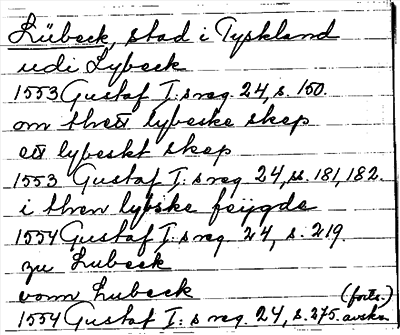 Lübeck, stad i Tyskland
udi Lybeck
1553 Gustaf I:s reg. 24, s. 150.
om thrett lybeske skep
ett lybeskt skep
1553 Gustaf I:s reg. 24, ss. 181, 182.
i then lybske feijgde
1554 Gustaf I:s reg. 24, s. 219.
zu Lubeck
vom Lubeck
(forts.)
1554 Gustaf I:s reg. 24, s. 275.